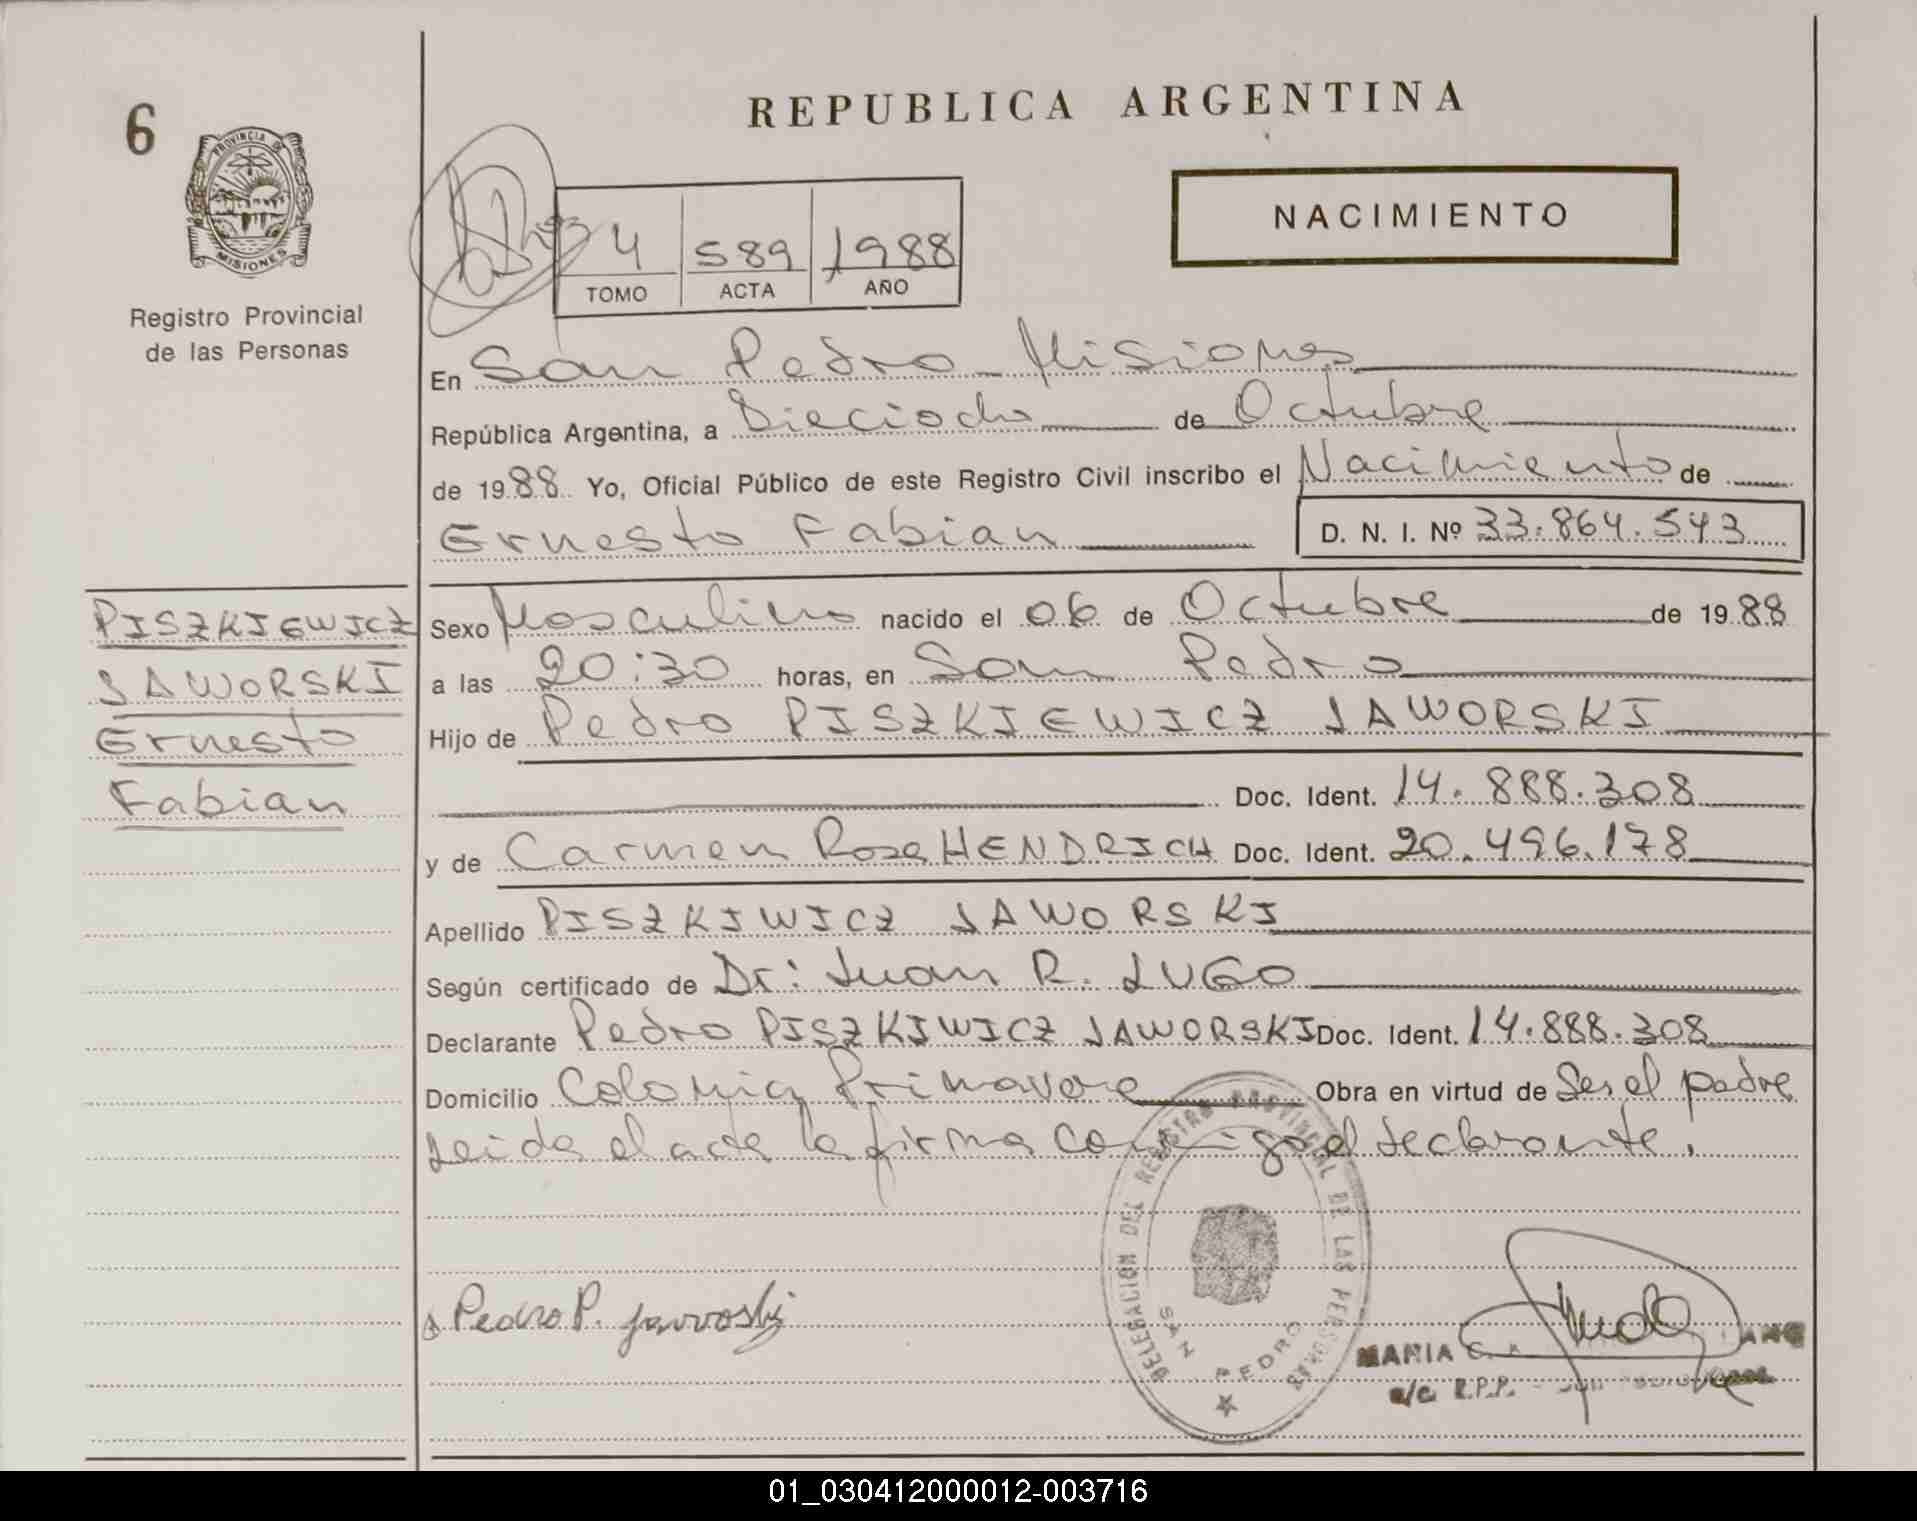 6
PROVINCIA DE
MISIONES
Registro Provincial
de las Personas
REPUBLICA ARGENTINA
NACIMIENTO
4 589 1988
TOMO ACTA AÑO
En San Pedro Misiones
República Argentina, a Dieciocho de Octubre
de 1988 Yo, Oficial Público de este Registro Civil inscribo el Nacimiento de
Ernesto Fabian D. N. I. Nº 33.864.543
PISZKIEWICZ
JAWORSKI
Ernesto
Fabian
Sexo Masculino nacido el 06 de Octubre de 1988
a las 20:30 horas, en San Pedro
Hijo de Pedro PISZKIEWICZ JAWORSKI
Doc. Ident. 14.888.308
y de Carmen Rosa HENDRICH Doc. Ident. 20.496.178
Apellido PISZKIWICZ JAWORSKI
Según certificado de Dr: Juan R. LUGO
Declarante Pedro PISZKIWICZ JAWORSKI Doc. Ident. 14.888.308
Domicilio Colonia Primavera Obra en virtud de Ser el padre
Leida el acta la firma conmigo el declarante.
DELEGACION DEL REGISTRO PROVINCIAL DE LAS PERSONAS
SAN PEDRO
Pedro P. Jawoski
MARIA
a/c. R.P.P.
01_030412000012-003716